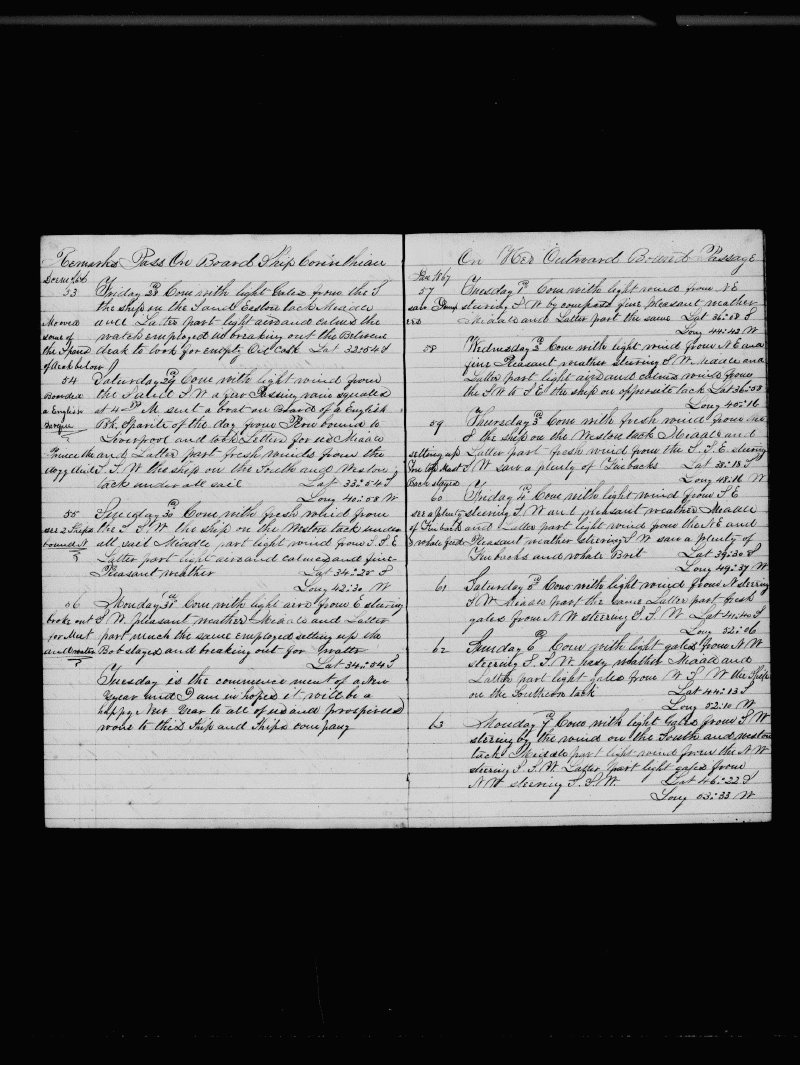 Remarks Pass On Board Ship Corinthian
53 Friday 28th Com with light Gales from the S
the ship on the S and Eastern tack Middle
Moved and Latter part light airs and calms the
some of watch employed us breaking out the Between
the Spard deak to look for empty Oil Cask Lat 32:54 S
of deak below
54 Saturday 29th Com with light wind from
Boarded the S at S W a few Passing rain squalls
a English at 4 PM sent a boat on Board of a English
Barque Bk Sparite of the day from bound to
Liverpool and took Letters for us Middle
Prince the and Latter part fresh winds from the
S.S.W. the ship on the South and Western
tack under all sail Lat 33:54 S
Long 40:58 W
55 Sunday 30th Com with fresh wind from
see 2 Ships the S S W the ship on the Western tack under
bound N all sail Middle part light wind from S.S.E
Latter part light airs and calmes and fine
Pleasant weather Lat 34:25 S
Long 42:30 W
56 Monday 31st Com with light airs from E steering
broke out S W. pleasant weather Middle and Latter
for Meet part much the same employed setting up the
and watter Bob stayes and breaking out for watter
Lat 34:54 S
Tuesday is the commencement of a New
Year and I am in hopes it will be a
happy New Year to all of us and prosperied
voige to this Ship and Ships company
On Her Outward Bound Passage
Jan 1867
57 Tuesday 1st Com with light wind from N E
saw steering S W by compass fine pleasant weather
Middle and Latter part the same Lat 36:08 S
Long 44:42 W
58 Wednesday 2d Com with light wind from N E and
fine Pleasant weather steering S W. Middle and
Latter part light airs and calmes wind from
the S W to S E the ship on opposite tack Lat 36:58
Long 46:16
59 Thursday 3d Com with fresh wind from
S the ship on the Western tack Middle and
setting up Latter part fresh wind from the S.S.E steering
Fore Top Mast S W saw a plenty of Finbacks Lat 38:18 S
Back stayes Long 48:16 W
60 Friday 4th Com with light wind from S E
see a plenty steering S.W and pleasant weather Middle
of Finback and Latter part light wind from the N E and
& whale feed Pleasant weather steering S W saw a plenty of
Finbacks and whale Brit Lat 39:30 S
Long 49:37 W
61 Saturday 5th Com with light wind from N steering
S W Middle part the same Latter part fresh
gales from N W steering S.S.W Lat 41:40 S
Long 52:06
62 Sunday 6th Com with light gales from N W
steering S.S.W hasy weather Middle and
Latter part light gales from W S W the Ship
on the Southern tack Lat 44:13 S
Long 52:10 W
63 Monday 7th Com with light Gales from S W
steering by the wind on the South and western
tack Middle part light wind from the N W
steering S.S.W. Latter part light gales from
N W steering S.S.W. Lat 46:22 S
Long 53:33 W